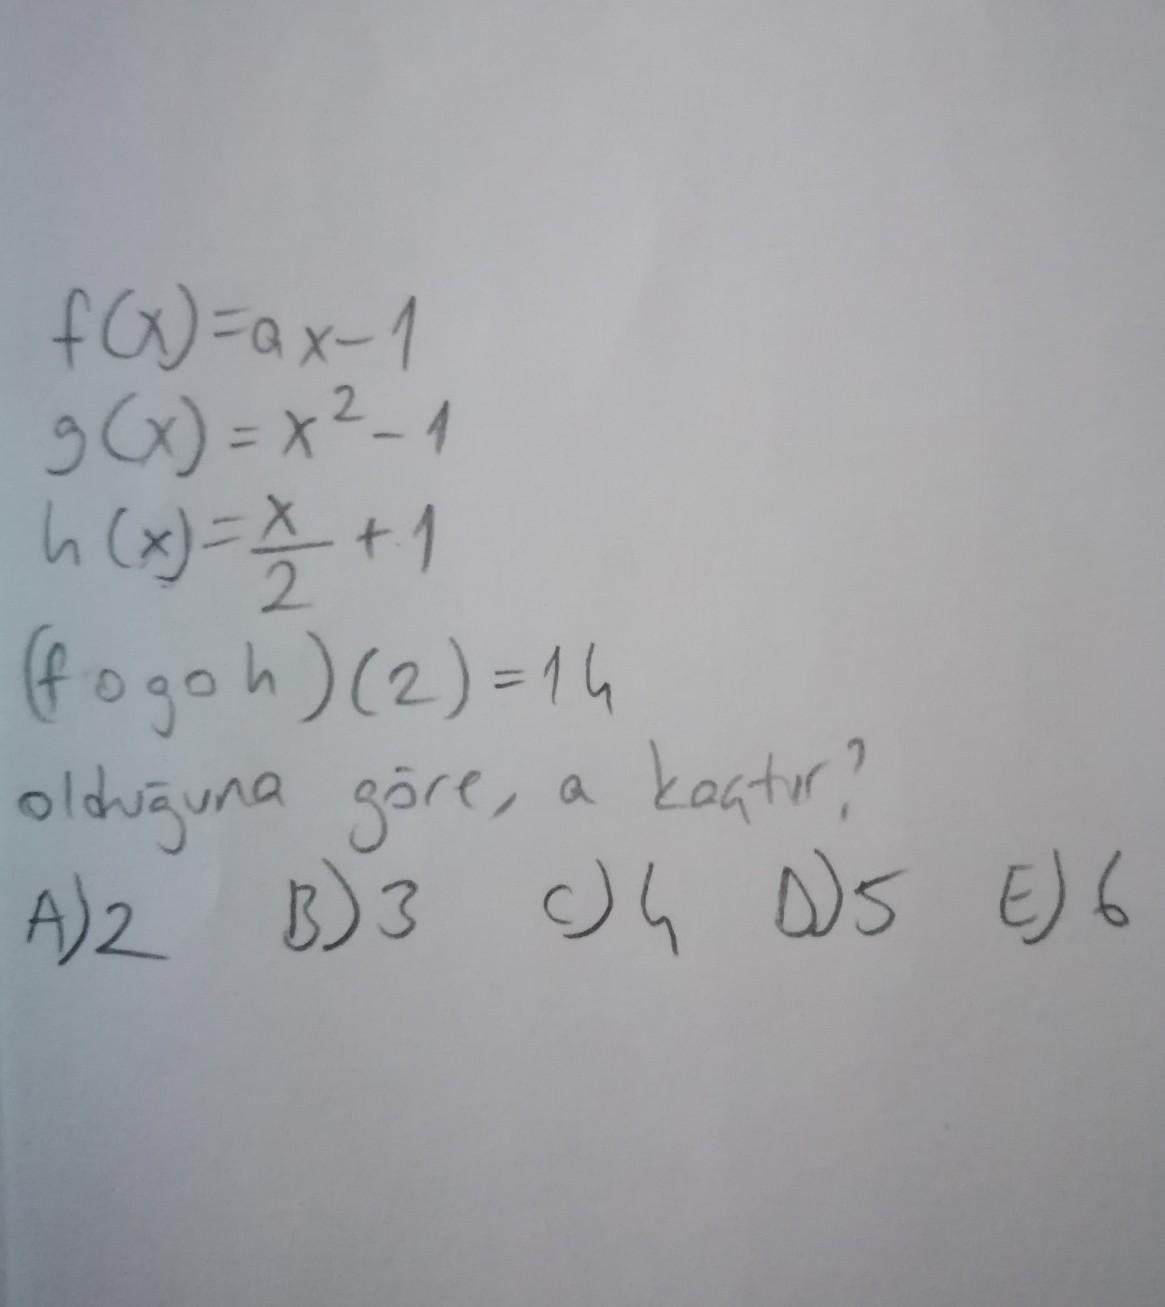 f(x)=ax-1
g(x)=x²-1
h(x)=x/2+1
(fogoh)(2)=14
olduğuna göre, a kaçtır?
A)2 B)3 C)4 D)5 E)6